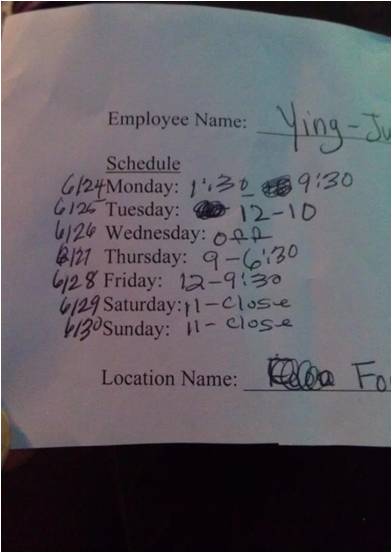 Employee Name: Ying-Ju
Schedule
6/24 Monday: 1:30 - 9:30
6/25 Tuesday: 12-10
6/26 Wednesday: off
6/27 Thursday: 9-6:30
6/28 Friday: 12-9:30
6/29 Saturday: 11-close
6/30 Sunday: 11-close
Location Name: Fo